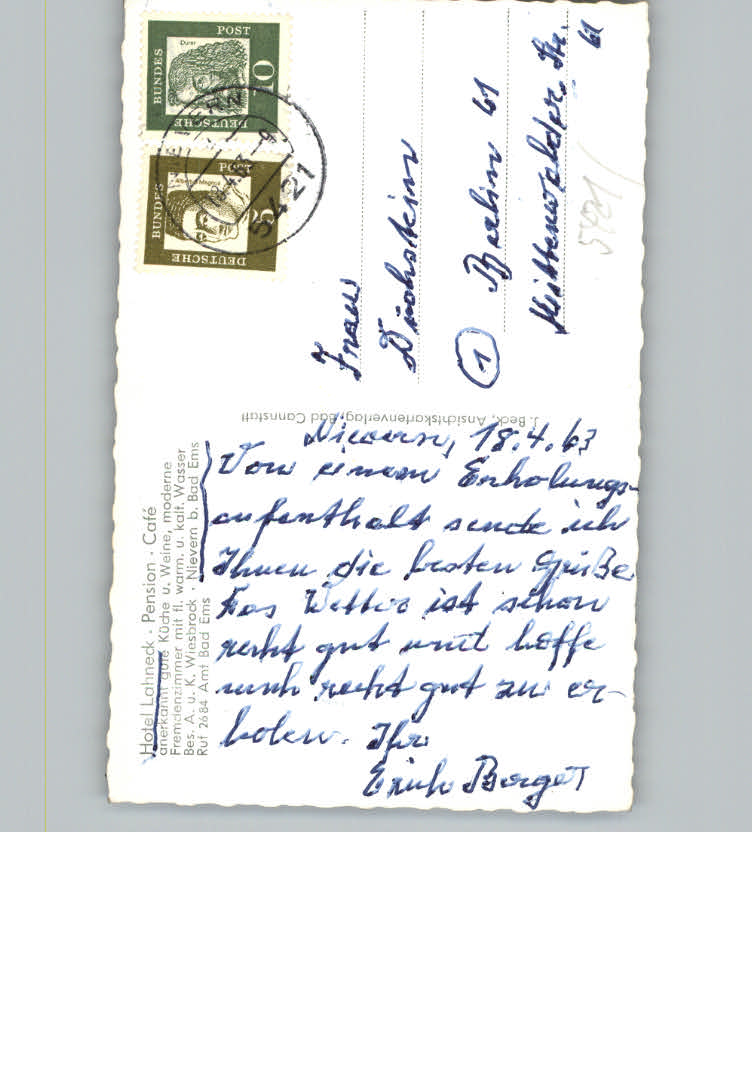 Hotel Lahneck · Pension · Café
anerkannt gute Küche u. Weine, moderne
Fremdenzimmer mit fl. warm. u. kalt. Wasser
Bes. A. u. K. Wiesbrock · Nievern b. Bad Ems
Ruf 2684 Amt Bad Ems
Nievern, 18.4.63
Von einem Erholungs-
aufenthalt sende ich
Ihnen die besten Grüße.
Das Wetter ist schon
recht gut und hoffe
mich recht gut zu er-
holen. Ihr
Erich Berget
J. Beck, Ansichtskartenverlag, Bad Cannstatt
DEUTSCHE BUNDES POST
Dürer
10
DEUTSCHE BUNDES POST
5
5421
Frau
1 Berlin 61
Mittenwalder Str.
61
5421